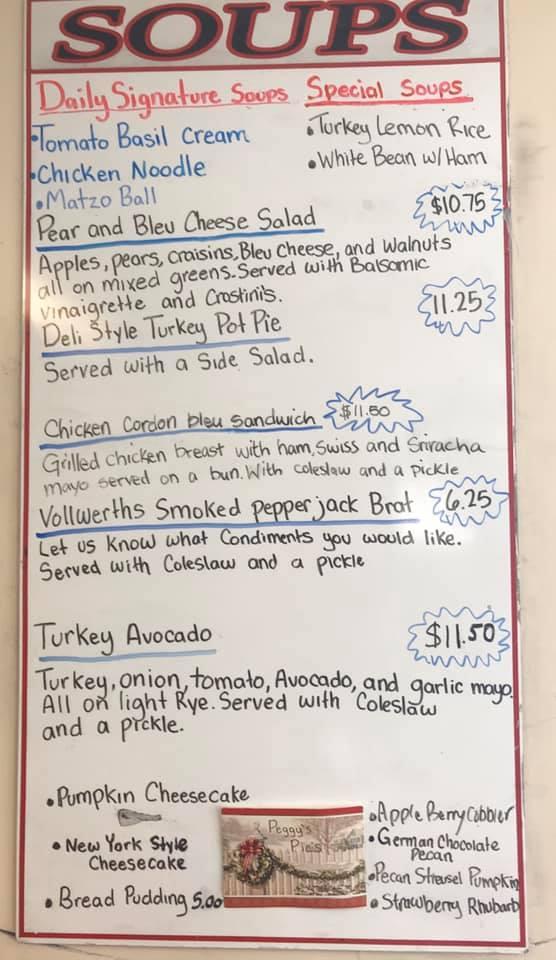 SOUPS
Daily Signature Soups
Special Soups
•Tomato Basil Cream
•Chicken Noodle
•Matzo Ball
•Turkey Lemon Rice
•White Bean w/Ham
Pear and Bleu Cheese Salad $10.75
Apples, pears, craisins, Bleu Cheese, and Walnuts
all on mixed greens. Served with Balsamic
vinaigrette and Crostini's.
Deli Style Turkey Pot Pie 11.25
Served with a Side Salad.
Chicken Cordon bleu Sandwich $11.50
Grilled chicken breast with ham, swiss and Sriracha
mayo served on a bun. With coleslaw and a pickle
Vollwerths Smoked pepperjack Brat 6.25
Let us know what Condiments you would like.
Served with Coleslaw and a pickle
Turkey Avocado $11.50
Turkey, onion, tomato, Avocado, and garlic mayo.
All on light Rye. Served with Coleslaw
and a pickle.
•Pumpkin Cheesecake
•New York Style
Cheesecake
•Bread Pudding 5.00
Peggy's
Pies
•Apple Berry Cobbler
•German Chocolate
Pecan
•Pecan Streusel Pumpkin
•Strawberry Rhubarb